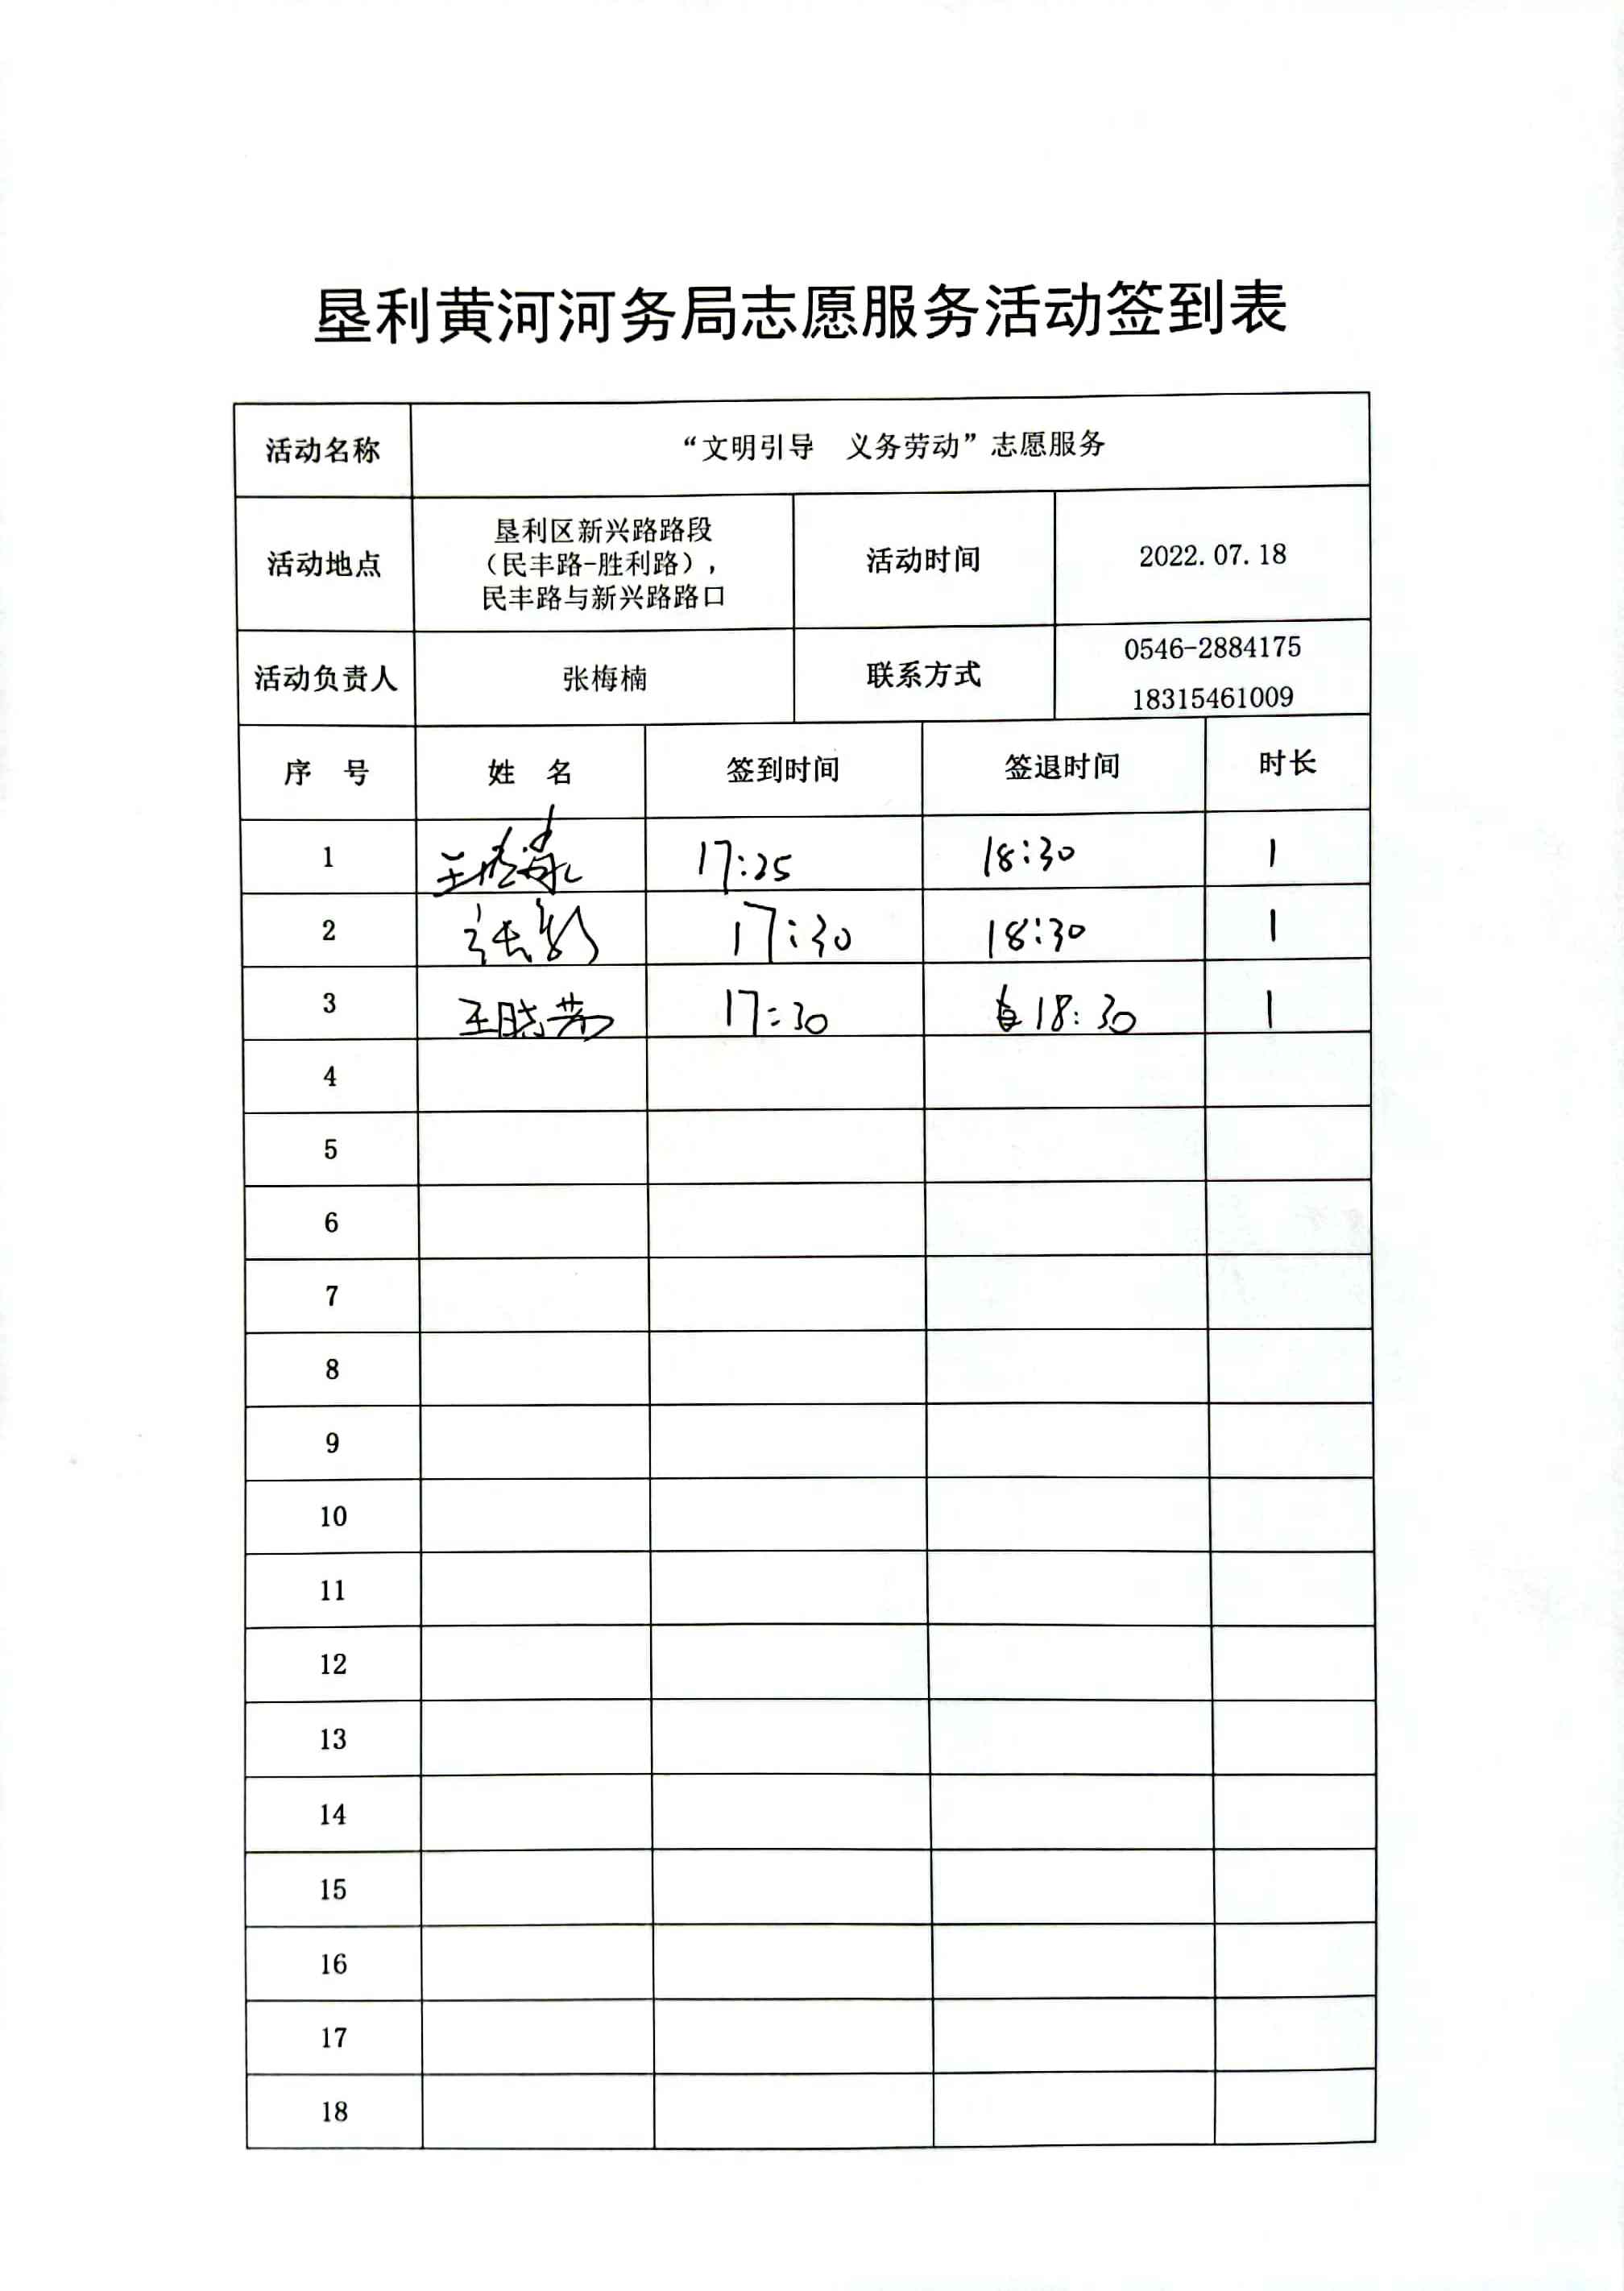 垦利黄河河务局志愿服务活动签到表
活动名称 “文明引导　义务劳动”志愿服务
活动地点 垦利区新兴路路段
（民丰路-胜利路），
民丰路与新兴路路口 活动时间 2022.07.18
活动负责人 张梅楠 联系方式 0546-2884175
18315461009
序　号 姓　名 签到时间 签退时间 时长
1 王 17:25 18:30 1
2 张 17:30 18:30 1
3 王晓 17:30 18:30 1
4
5
6
7
8
9
10
11
12
13
14
15
16
17
18